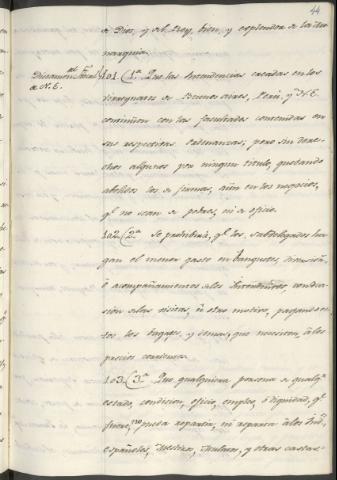 44
de Dios, y del Rey, bien, y esplendor de la Mo-
narquia.
Dictamen del
de N. E.
101 (1.ª Que las Intendencias creadas en los
Virreynatos de Buenos aires, Perú, y N. E.
continúen con las facultades contenidas en
sus respectivas Ordenanzas; pero sin dere-
chos algunos por ningun titulo, quedando
abolidos los de firmas, aún en los negocios,
q.e no sean de pobres, ni de oficio.
102 (2.ª Se prohibirá, q.e los Subdelegados ha-
gan el menor gasto en banquetes, diversión,
ó acompañamientos a los Intendentes con oca-
sion de las visitas, ú otro motivo, pagando es-
tos los bagajes, y demas, que necesiten, á los
precios corrientes.
103 (3.ª Que qualquiera persona de qualq.a
estado, condicion, oficio, empleo, ó dignidad, q.e
fuere, no pueda repartir, ni reparta á los Ind.s
españoles, Mestizos, Mulatos, y otras castas-